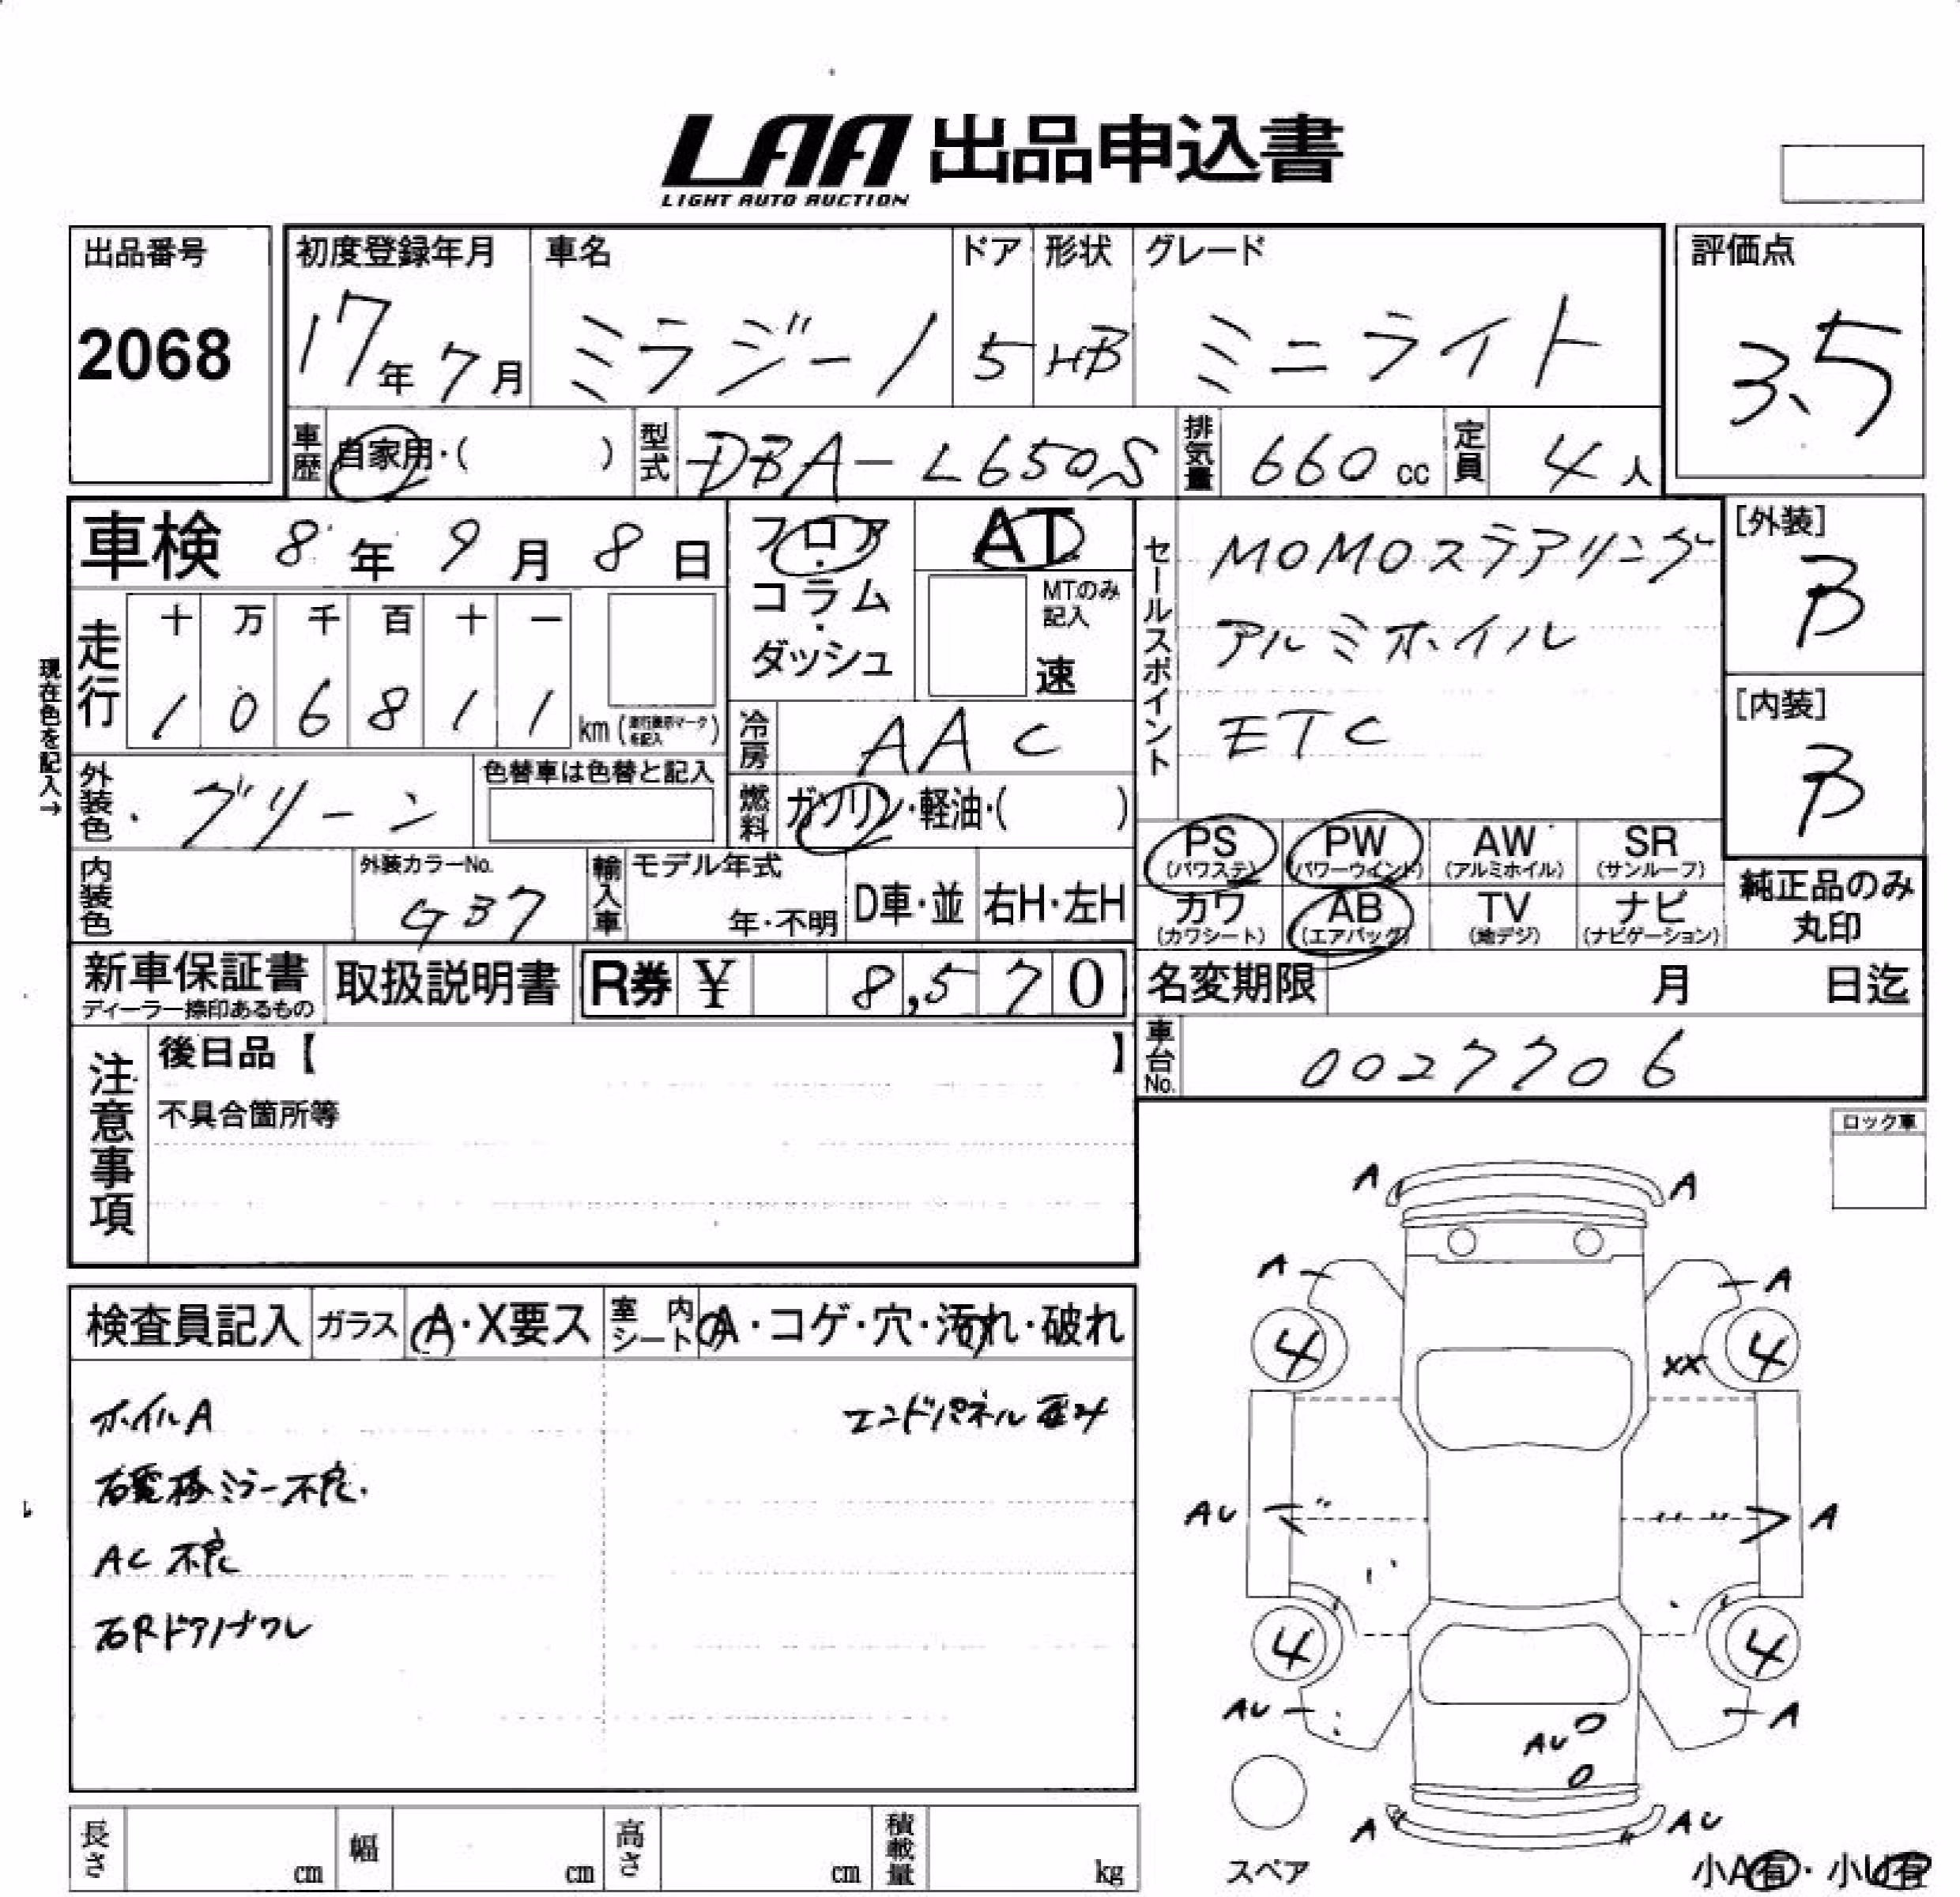 LAA 出品申込書
LIGHT AUTO AUCTION
出品番号
2068
初度登録年月
17年7月
車名
ミラジーノ
ドア
5
形状
HB
グレード
ミニライト
評価点
3.5
車歴 自家用・( )
型式 DBA-L650S
排気量 660cc
定員 4人
車検 8年9月8日
フロア・コラム・ダッシュ
AT
MTのみ記入
速
セールスポイント
MOMOステアリング
アルミホイル
ETC
[外装]
B
[内装]
B
現在色を記入→
走行
十 万 千 百 十 一
1 0 6 8 1 1 km
冷房 AAC
外装色 グリーン
色替車は色替と記入
燃料 ガソリン・軽油・( )
PS (パワステ)
PW (パワーウインド)
AW (アルミホイル)
SR (サンルーフ)
カワ (カワシート)
AB (エアバッグ)
TV (地デジ)
ナビ (ナビゲーション)
純正品のみ
丸印
内装色
外装カラーNo.
G37
輸入車
モデル年式
年・不明
D車・並
右H・左H
新車保証書
ディーラー捺印あるもの
取扱説明書
R券 ¥ 8,570
名変期限 月 日迄
車台No. 0027706
注意事項
後日品【 】
不具合箇所等
ロック車
検査員記入
ガラス A・X要ス
室内シート A・コゲ・穴・汚れ・破れ
ホイルA
エンドパネル歪み
右電格ミラー不良.
AC不良
右Rドアノブワレ
A A
A A
4 4
XX
AU A
4 4
AU A
AU
A AU
スペア
小A有・小U有
長さ cm
幅 cm
高さ cm
積載量 kg